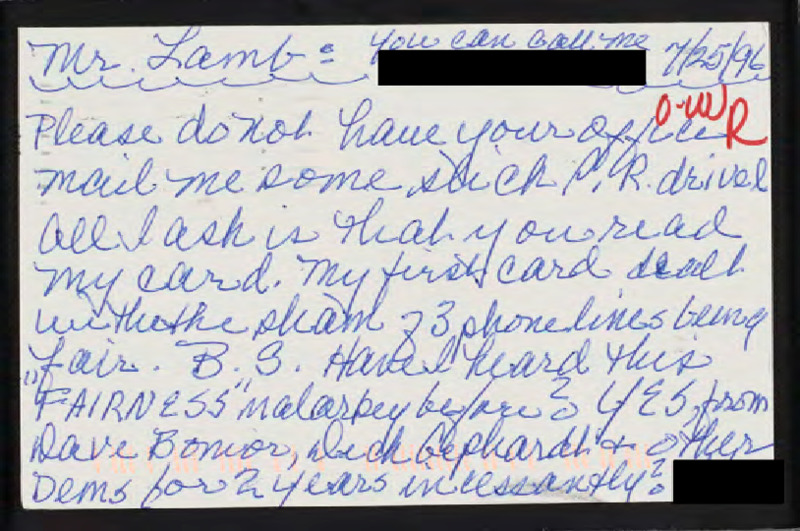 Mr. Lamb: you can call me 7/25/96
o-w R
Please do not have your office
mail me some slick P.R. drivel
All I ask is that you read
my card. My first card dealt
with the sham of 3 phone lines being
fair. B.S. Have I heard this
"FAIRNESS" malarkey before? YES, from
Dave Bonior, Dick Gephardt & other
Dems for 2 years incessantly?